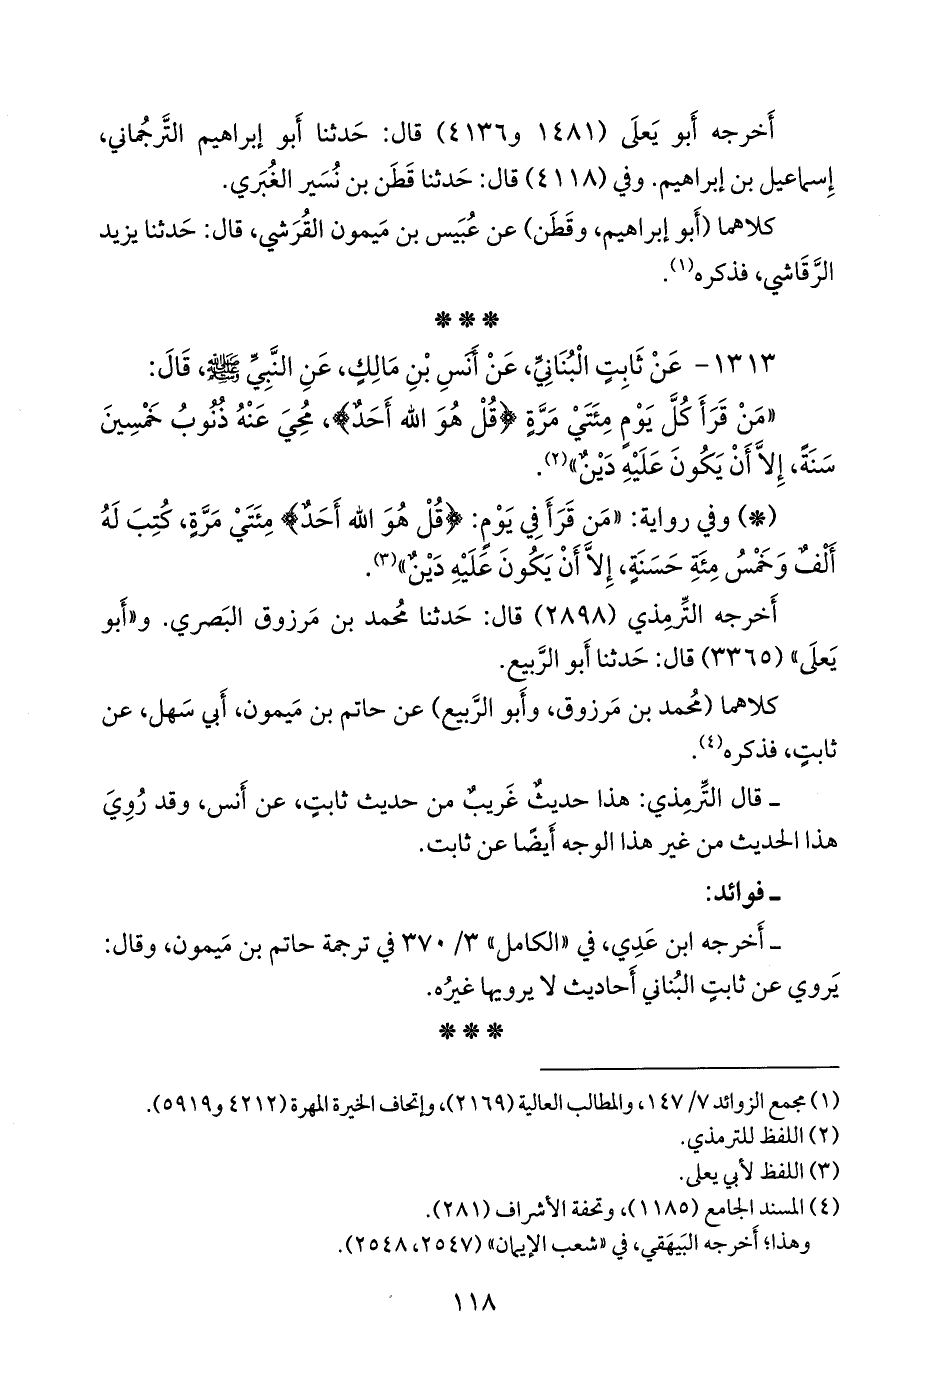 أَخرجه أَبو يَعلَى (١٤٨١ و٤١٣٦) قال: حَدثنا أَبو إبراهيم التَّرجُماني،
إِسماعيل بن إبراهيم. وفي (٤١١٨) قال: حَدثنا قَطَن بن نُسَير الغُبَري.
كلاهما (أَبو إبراهيم، وقَطَن) عن عُبَيس بن مَيمون القُرَشي، قال: حَدثنا يزيد
الرَّقَاشي، فذكره(١).
* * *
١٣١٣- عَنْ ثَابِتٍ الْبُنَانِيِّ، عَنْ أَنَسِ بْنِ مَالِكٍ، عَنِ النَّبِيِّ ﷺ، قَالَ:
«مَنْ قَرَأَ كُلَّ يَوْمٍ مِئَتَيْ مَرَّةٍ ﴿قُلْ هُوَ الله أَحَدٌ﴾، مُحِيَ عَنْهُ ذُنُوبُ خَمْسِينَ
سَنَةً، إِلاَّ أَنْ يَكُونَ عَلَيْهِ دَيْنٌ»(٢).
(*) وفي رواية: «مَن قَرَأَ فِي يَوْمٍ: ﴿قُلْ هُوَ الله أَحَدٌ﴾ مِئَتَيْ مَرَّةٍ، كُتِبَ لَهُ
أَلْفٌ وَخَمْسُ مِئَةِ حَسَنَةٍ، إِلاَّ أَنْ يَكُونَ عَلَيْهِ دَيْنٌ»(٣).
أَخرجه التِّرمِذي (٢٨٩٨) قال: حَدثنا مُحمد بن مَرزوق البَصري. و«أَبو
يَعلَى» (٣٣٦٥) قال: حَدثنا أَبو الرَّبيع.
كلاهما (مُحمد بن مَرزوق، وأَبو الرَّبيع) عن حاتم بن مَيمون، أَبي سَهل، عن
ثابتٍ، فذكره(٤).
ـ قال التِّرمِذي: هذا حديثٌ غَريبٌ من حديث ثابتٍ، عن أَنس، وقد رُوِيَ
هذا الحديث من غير هذا الوجه أَيضًا عن ثابت.
ـ فوائد:
ـ أَخرجه ابن عَدِي، في «الكامل» ٣/ ٣٧٠ في ترجمة حاتم بن مَيمون، وقال:
يَروي عن ثابتٍ البُناني أَحاديث لا يرويها غيرُه.
* * *
(١) مجمع الزوائد ٧/ ١٤٧، والمطالب العالية (٢١٦٩)، وإتحاف الخيرة المهرة (٤٢١٢ و٥٩١٩).
(٢) اللفظ للترمذي.
(٣) اللفظ لأبي يعلى.
(٤) المسند الجامع (١١٨٥)، وتحفة الأشراف (٢٨١).
وهذا؛ أَخرجه البَيهَقي، في «شعب الإيمان» (٢٥٤٧، ٢٥٤٨).
١١٨